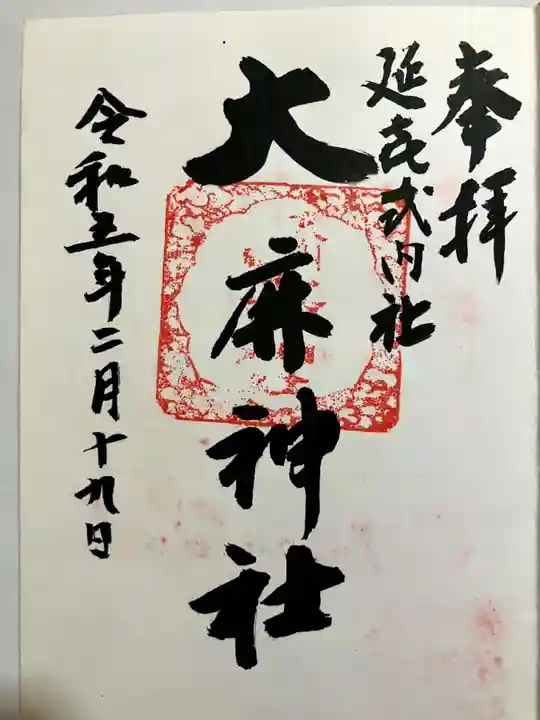 奉拝
延㐂式内社
大麻神社
令和五年二月十九日